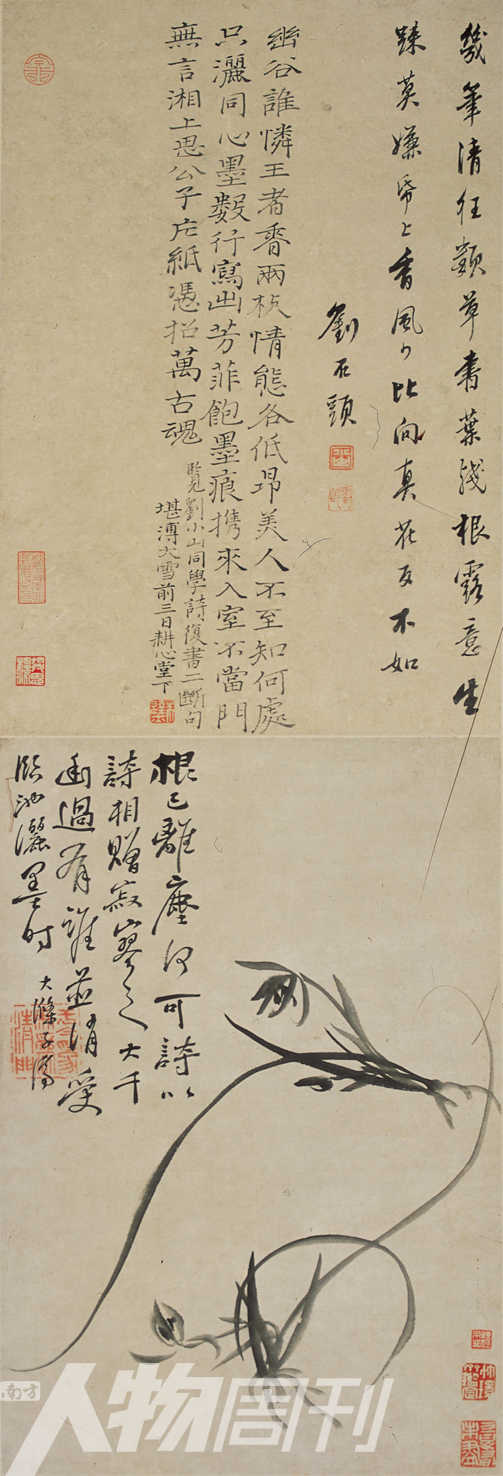 幾筆清狂顛草書葉殘根露意生
踈莫嫌帋上香風少比向真花反不如
劉石頭
幽谷誰憐王者香兩枝情態各低昂美人不至知何處
只灑同心墨數行寫出芳菲飽墨痕攜來入室不當門
無言湘上思公子片紙憑招萬古魂
覽劉小山同學詩復書二斷句
堪溥大雪前三日耕心堂下
根已離塵何可詩以
詩相贈寂寥之大千
過有誰並消受
臨池灑墨時 大滌子濟
南方人物周刊